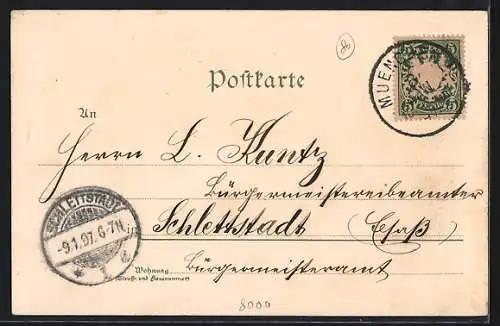 Postkarte
MUEN
5 5
An
Herrn L. Kuntz
Bürgermeistereibeamter
in
Schlettstadt (Elsaß)
SCHLETTSTADT
-9.1.97. 6-7N.
Wohnung
(Strasse und Hausnummer)
Bürgermeisteramt
8000